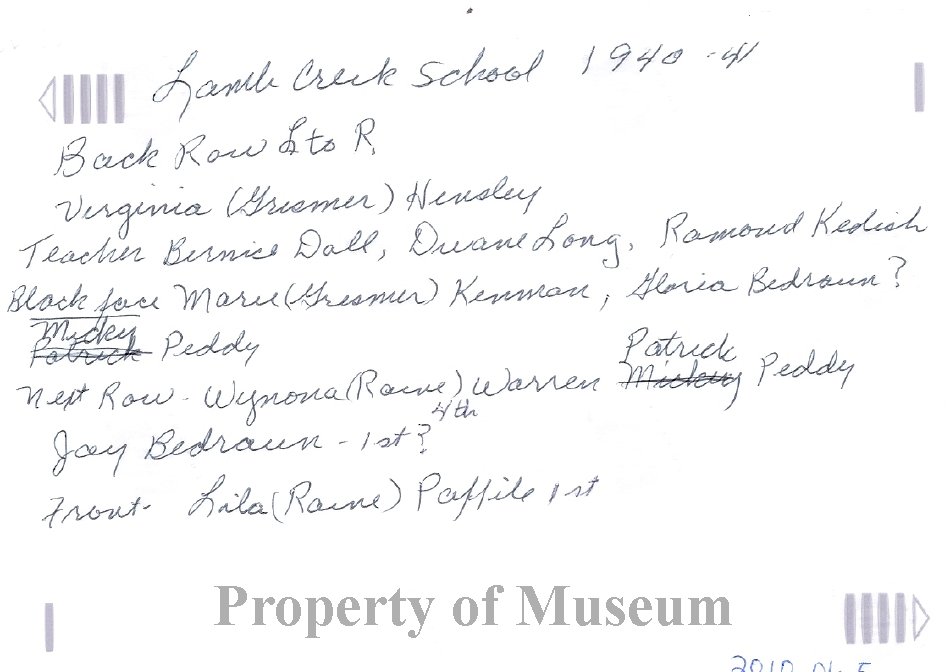 Lamb Creek School 1940-41
Back Row L to R.
Virginia (Gresmer) Hensley
Teacher Bernice Dall, Duane Long, Ramond Kedish
Black face Marie (Gresmer) Kenman, Gloria Bedraun?
Micky Patrick
Patrick Peddy Mickey Peddy
Next Row - Wynona (Raine) Warren
4th
Jay Bedraun - 1st?
Front - Lila (Raine) Paffile 1st
Property of Museum